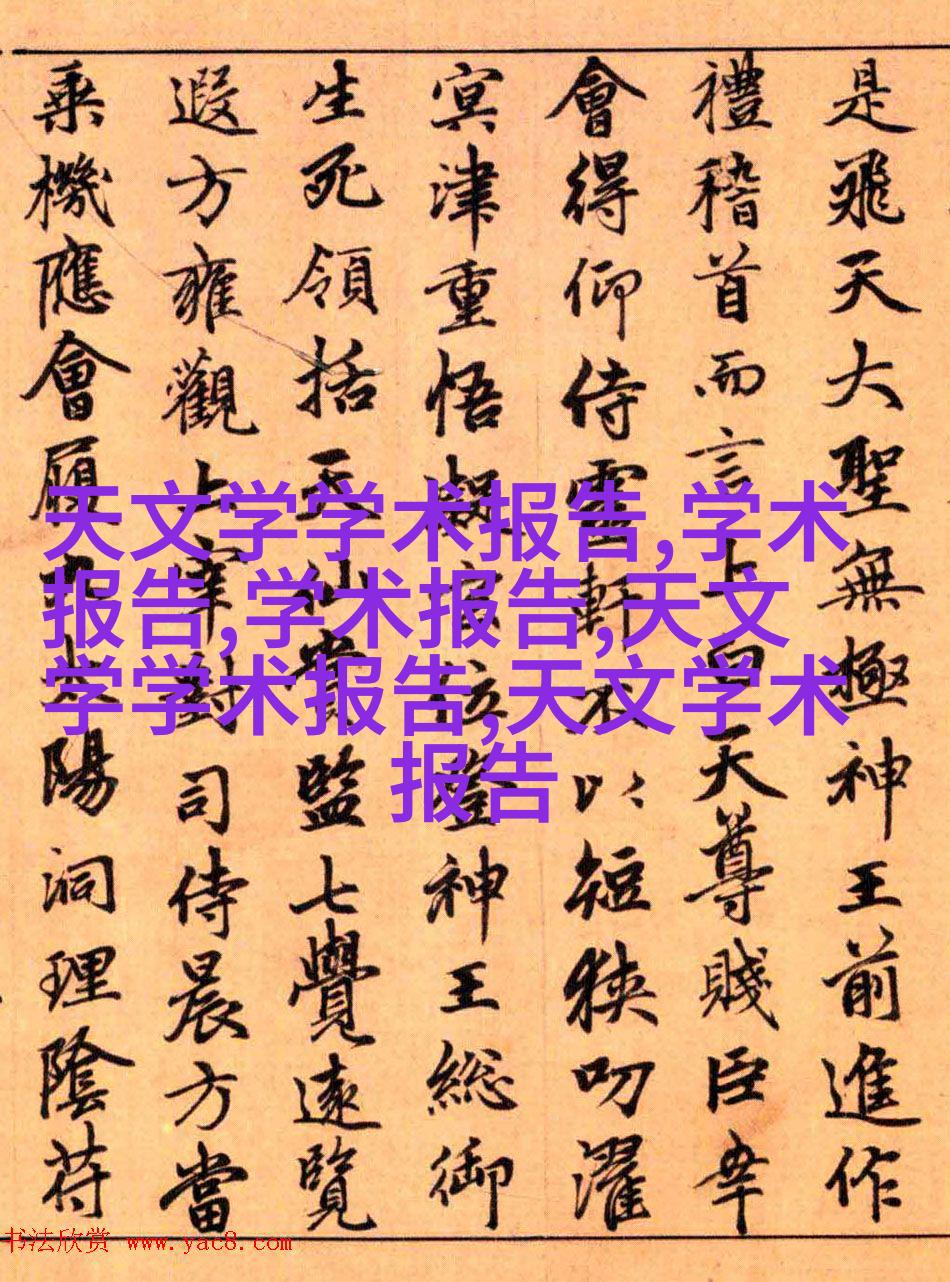 是飛天大聖無極神王前進作
禮稽首而言上白天尊賤臣幸
會得仰侍靈軒不以短狹叨濯
冥津重悟登神王総御
生死領括天仙監七覺遠覽
遐方雍觀上宰對司侍晨方當
乗機應會履太陽洞理陰苻
天文学学术报告,学术
报告,学术报告,天文
学学术报告,天文学术
报告
书法欣赏 www.yac8.com